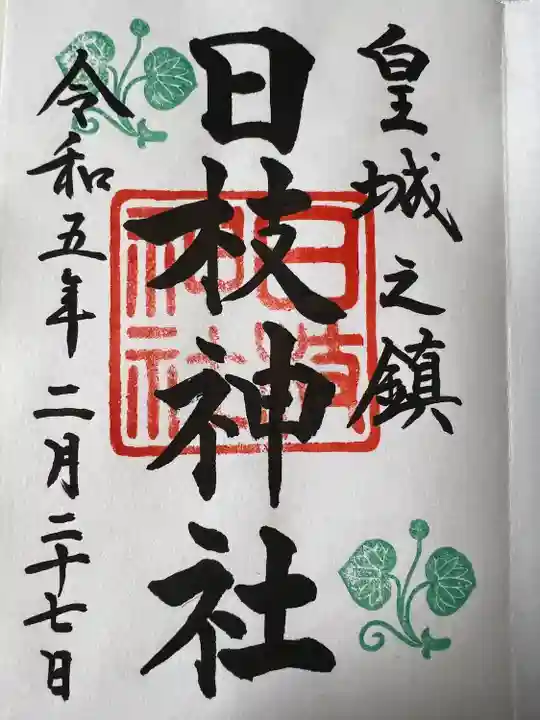 皇城之鎮
日枝神社
日枝
神社
令和五年二月二十七日